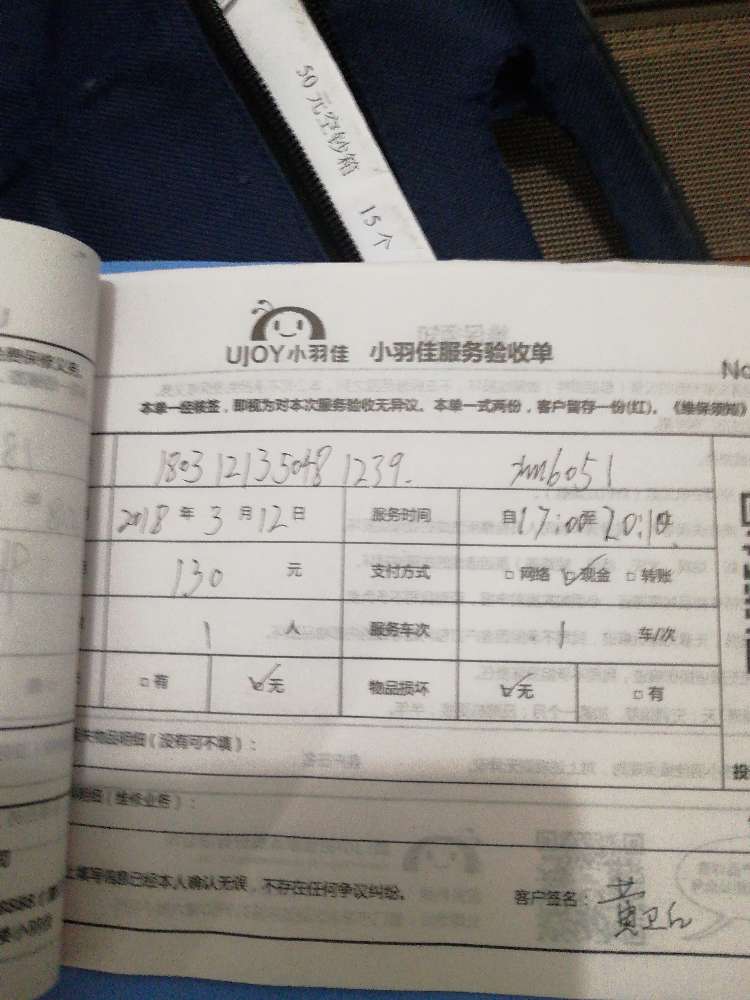 50元空钞箱 15个
UJOY小羽佳 小羽佳服务验收单
No
本单一经核签，即视为对本次服务验收无异议。本单一式两份，客户留存一份(红)。《维保须知》
1803121350481239.
2018年3月12日 服务时间 自17:00至20:10
130元 支付方式 □网络 ☑现金 □转账
1人 服务车次 1车/次
□有 ☑无 物品损坏 ☑无 □有
失物品明细（没有可不填）：
明细（维修业务）：
上填写信息已经本人确认无误，不存在任何争议纠纷。 客户签名：黄卫红